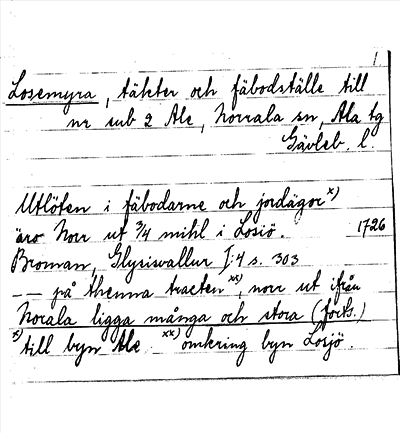 1.
Losemyra, täkter och fäbodställe till
nr sub 2 Ale, Norrala sn, Ala tg
Gävleb. l.
Utlöten i fäbodarne och jordägor x)
äro Norr ut 3/4 mihl i Losiö. 1726
Broman, Glysisvallur I:4 s. 303
— på thenna tracten xx), norr ut ifrån
Norala ligga många och stora (forts.)
x) till byn Ale xx) omkring byn Losjö.